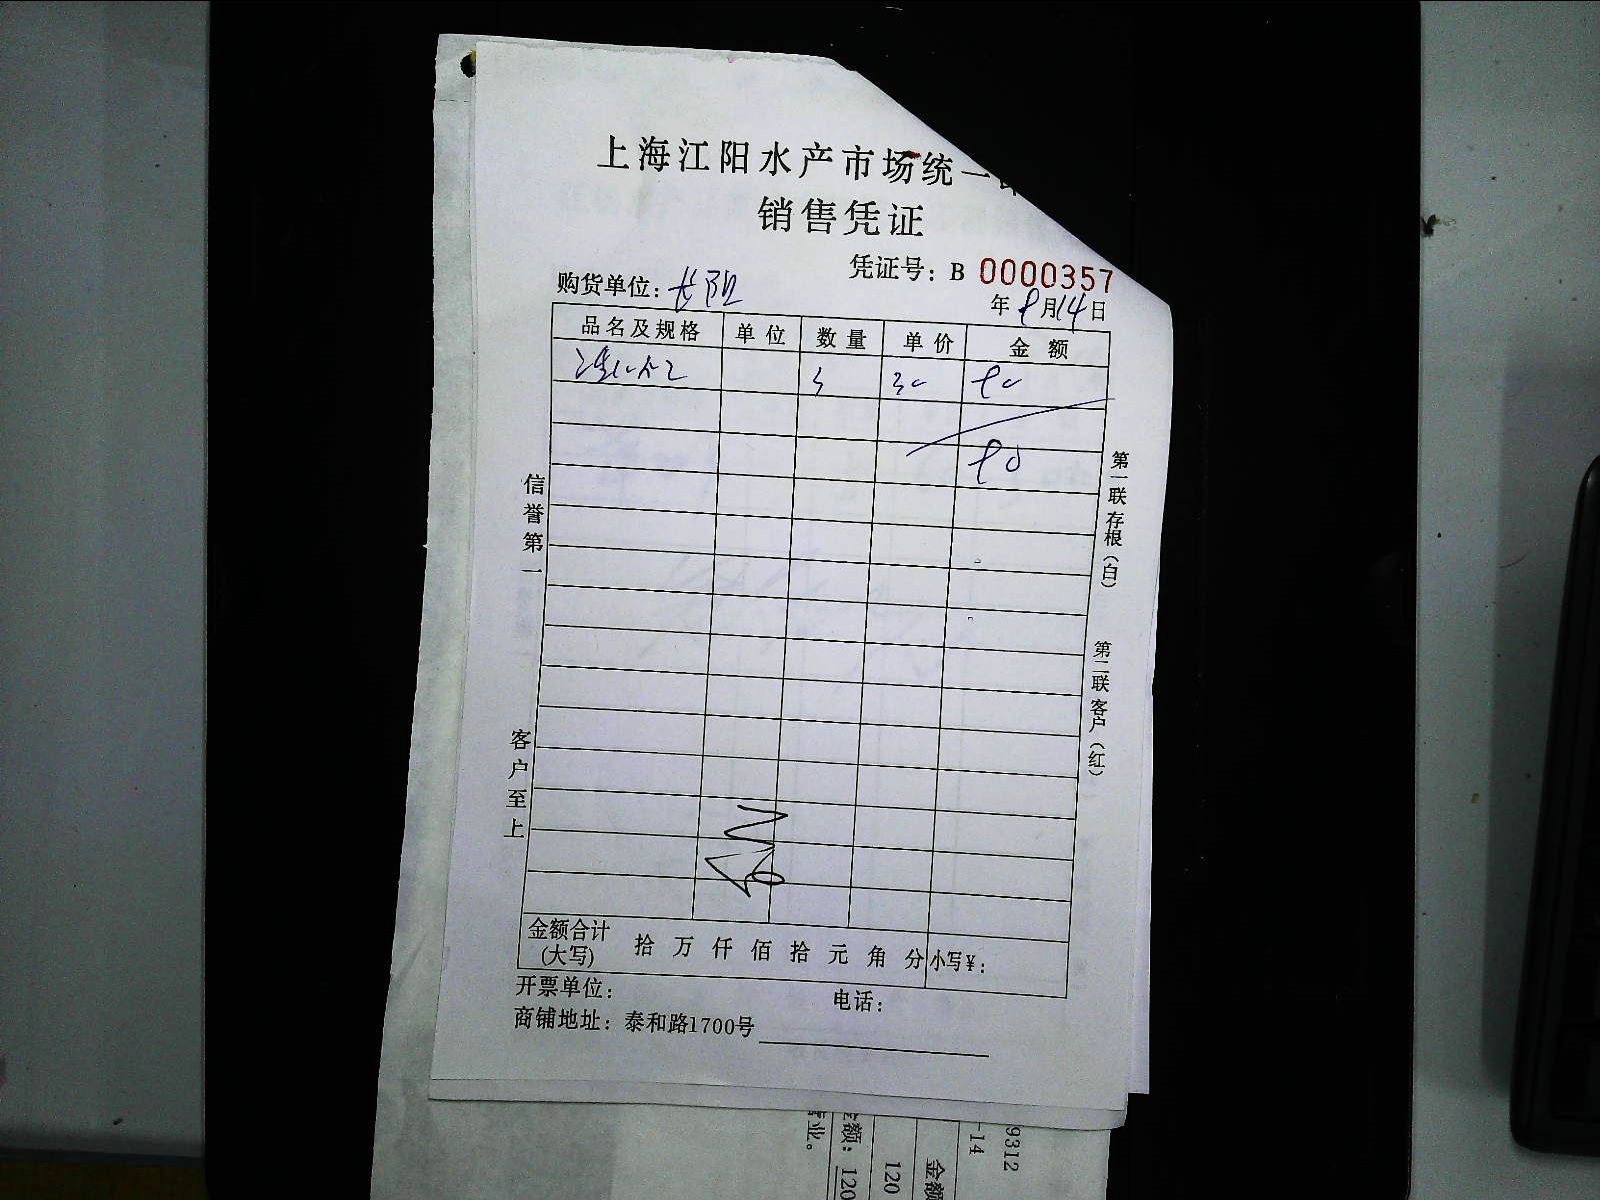 上海江阳水产市场统一
销售凭证
凭证号：B 0000357
购货单位：长阳
年 9月14日
品名及规格 单位 数量 单价 金额
3 30 90
90
信誉第一
客户至上
第一联存根（白）
第二联客户（红）
金额合计(大写) 拾 万 仟 佰 拾 元 角 分 小写¥：
开票单位： 电话：
商铺地址：泰和路1700号
9312
-14
金额
120
金额：120
业。